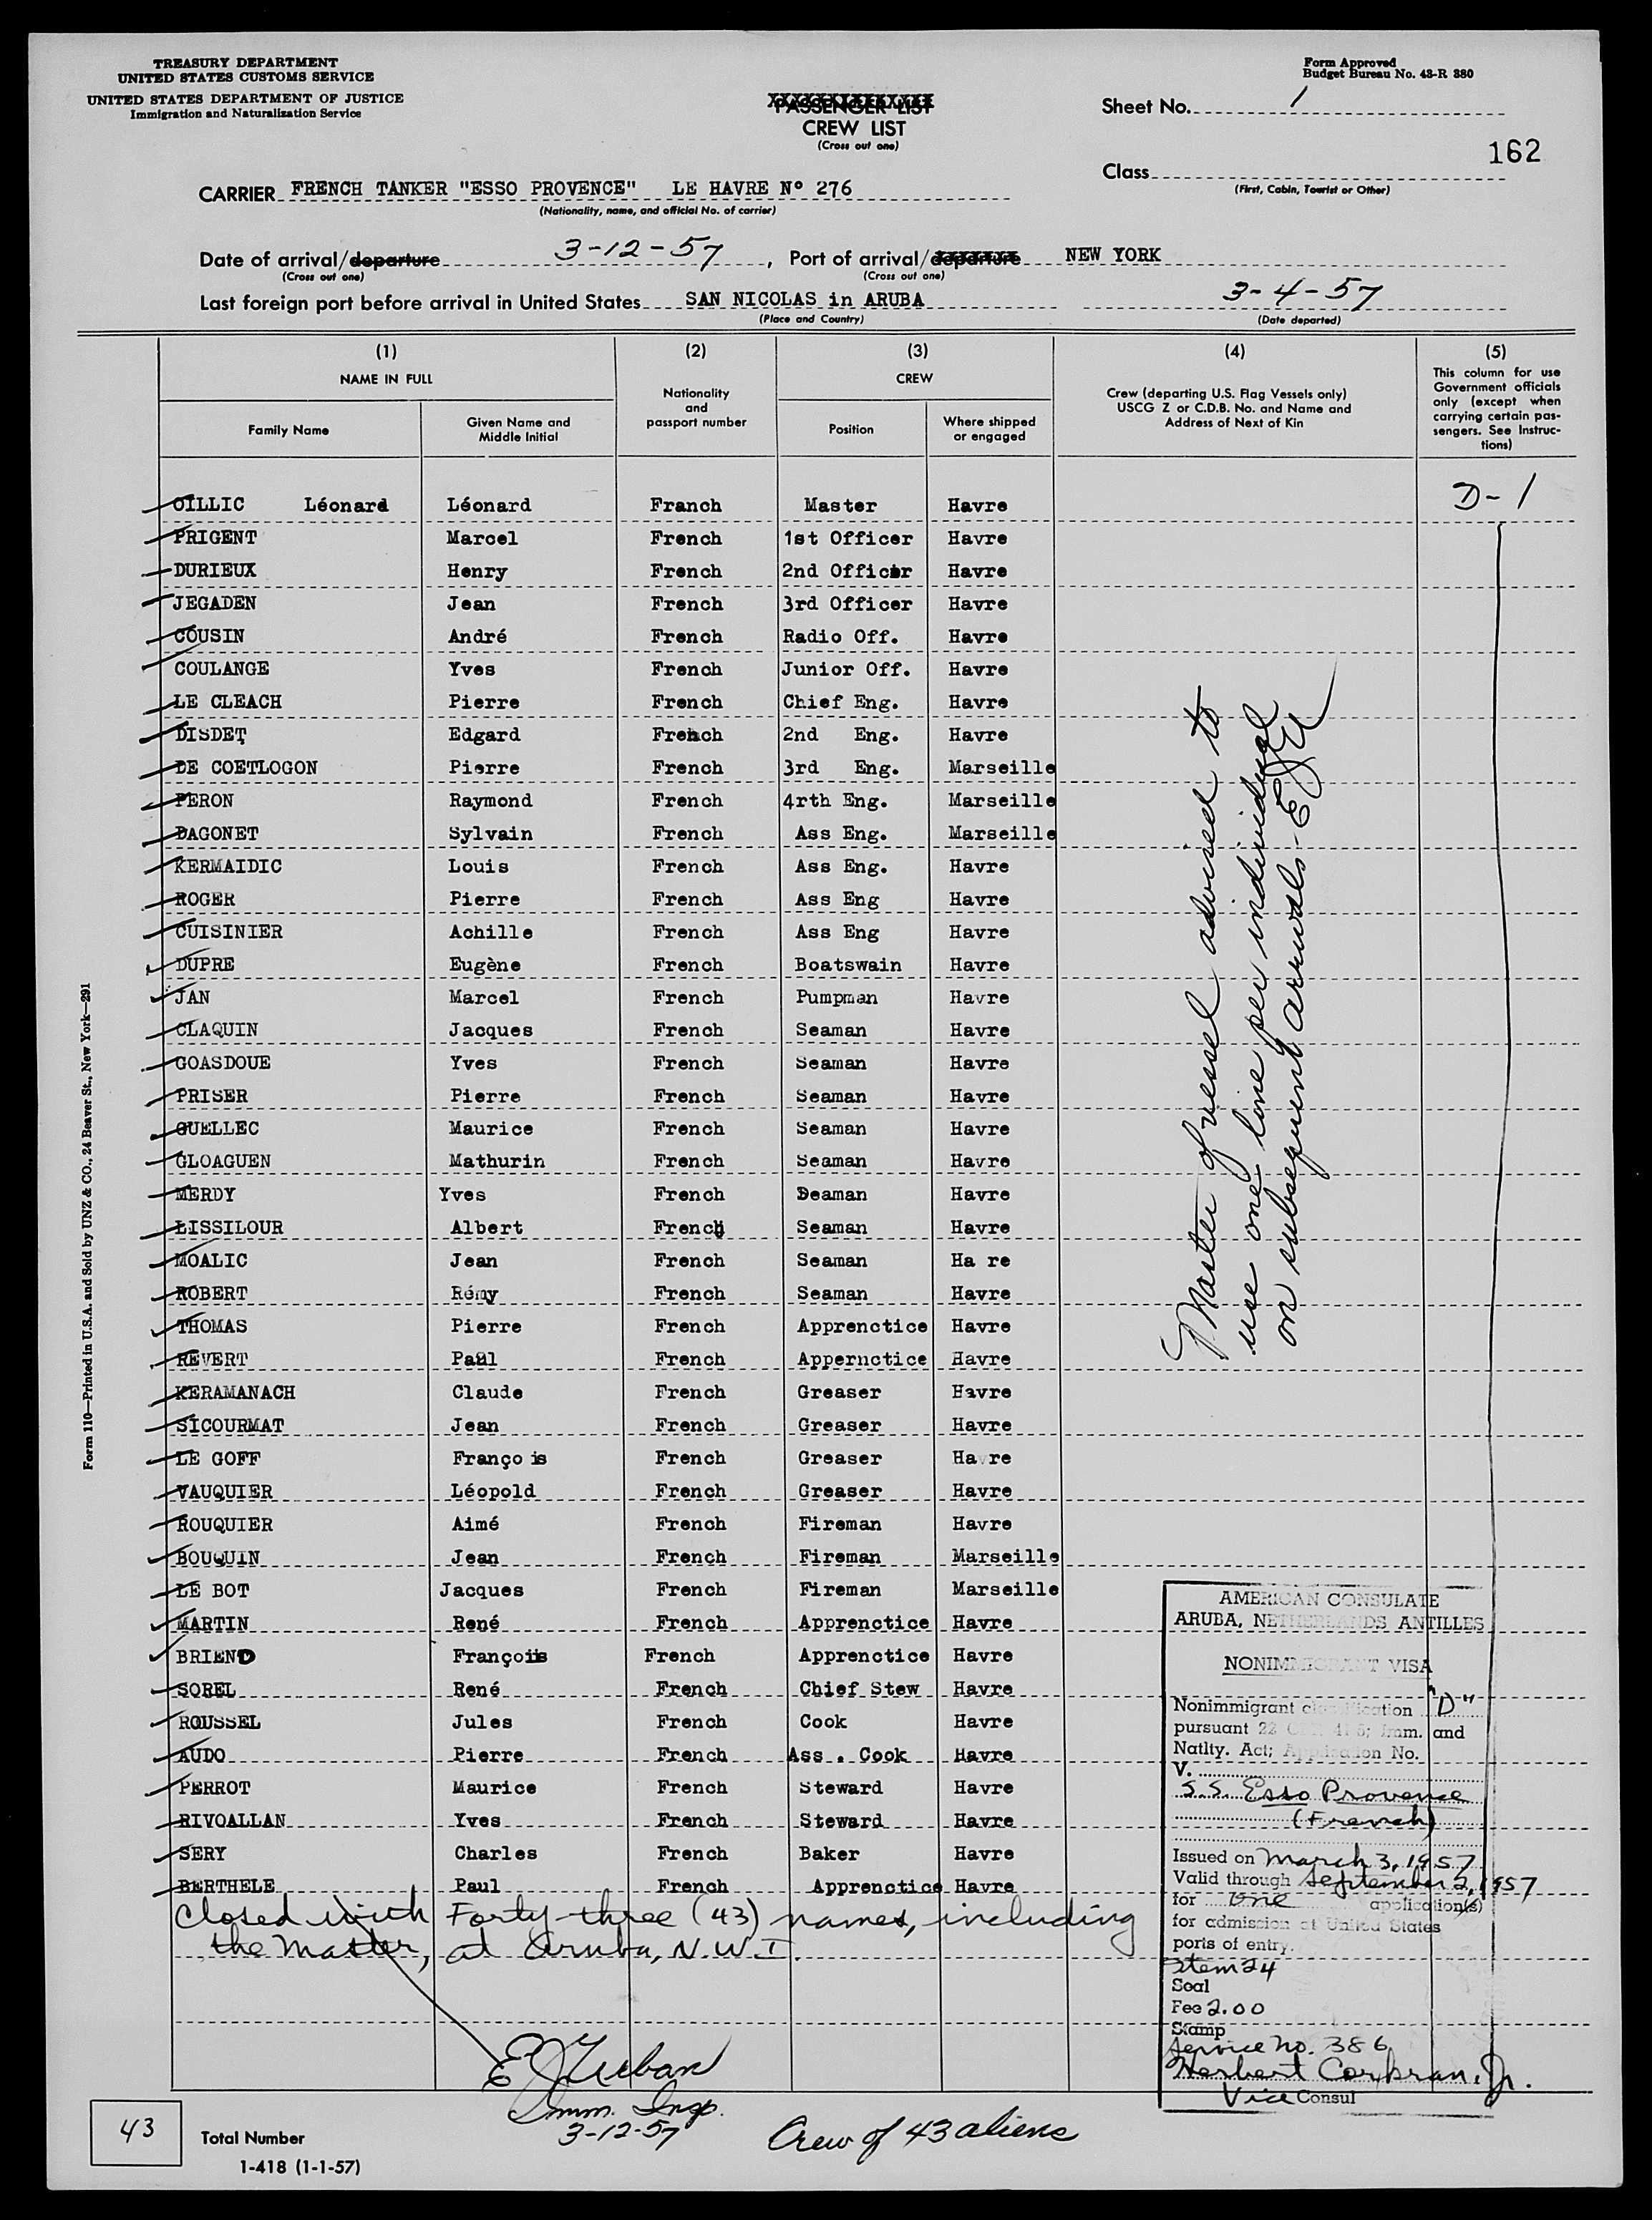 TREASURY DEPARTMENT
UNITED STATES CUSTOMS SERVICE
UNITED STATES DEPARTMENT OF JUSTICE
Immigration and Naturalization Service
Form Approved
Budget Bureau No. 43-R 380
PASSENGER LIST
CREW LIST
(Cross out one)
Sheet No. 1
162
Class
(First, Cabin, Tourist or Other)
CARRIER FRENCH TANKER "ESSO PROVENCE" LE HAVRE Nº 276
(Nationality, name, and official No. of carrier)
Date of arrival/departure 3-12-57, Port of arrival/departure NEW YORK
(Cross out one) (Cross out one)
Last foreign port before arrival in United States SAN NICOLAS in ARUBA 3-4-57
(Place and Country) (Date departed)
(1) (2) (3) (4) (5)
NAME IN FULL
Family Name
Given Name and Middle Initial
Nationality and passport number
CREW
Position
Where shipped or engaged
Crew (departing U.S. Flag Vessels only)
USCG Z or C.D.B. No. and Name and
Address of Next of Kin
This column for use
Government officials
only (except when
carrying certain pas-
sengers. See Instruc-
tions)
OILLIC Léonard Léonard Franch Master Havre D-1
PRIGENT Marcel French 1st Officer Havre
DURIEUX Henry French 2nd Officer Havre
JEGADEN Jean French 3rd Officer Havre
COUSIN André French Radio Off. Havre
COULANGE Yves French Junior Off. Havre
LE CLEACH Pierre French Chief Eng. Havre
DISDET Edgard French 2nd Eng. Havre
DE COETLOGON Pierre French 3rd Eng. Marseille
PERON Raymond French 4rth Eng. Marseille
DAGONET Sylvain French Ass Eng. Marseille
KERMAIDIC Louis French Ass Eng. Havre
ROGER Pierre French Ass Eng Havre
CUISINIER Achille French Ass Eng Havre
DUPRE Eugène French Boatswain Havre
JAN Marcel French Pumpman Havre
CLAQUIN Jacques French Seaman Havre
GOASDOUE Yves French Seaman Havre
PRISER Pierre French Seaman Havre
GUELLEC Maurice French Seaman Havre
GLOAGUEN Mathurin French Seaman Havre
MERDY Yves French Deaman Havre
LISSILOUR Albert French Seaman Havre
MOALIC Jean French Seaman Ha re
ROBERT Rémy French Seaman Havre
THOMAS Pierre French Apprenctice Havre
REVERT Paul French Appernctice Havre
KERAMANACH Claude French Greaser Havre
SICOURMAT Jean French Greaser Havre
LE GOFF François French Greaser Havre
VAUQUIER Léopold French Greaser Havre
ROUQUIER Aimé French Fireman Havre
BOUQUIN Jean French Fireman Marseille
LE BOT Jacques French Fireman Marseille
MARTIN René French Apprenctice Havre
BRIEND François French Apprenctice Havre
SOREL René French Chief Stew Havre
ROUSSEL Jules French Cook Havre
AUDO Pierre French Ass. Cook Havre
PERROT Maurice French Steward Havre
RIVOALLAN Yves French Steward Havre
SERY Charles French Baker Havre
BERTHELE Paul French Apprenctice Havre
Closed with Forty-three (43) names, including
the Master, at Aruba, N.W.I.
Master of vessel advised to
use one line per individual
on subsequent arrivals - EJU
AMERICAN CONSULATE
ARUBA, NETHERLANDS ANTILLES
NONIMMIGRANT VISA
Nonimmigrant classification "D"
pursuant 22 CFR 41.5; Imm. and
Natlty. Act; Application No.
V.
S.S. Esso Provence
(French)
Issued on March 3, 1957
Valid through September 2, 1957
for one application(s)
for admission at United States
ports of entry.
Item 24
Seal
Fee 2.00
Stamp
Service No. 386
Herbert Corkran, Jr.
Vice Consul
Imm. Insp.
3-12-57
Crew of 43 aliens
43 Total Number
1-418 (1-1-57)
Form 110—Printed in U.S.A. and Sold by UNZ & CO., 24 Beaver St., New York—291